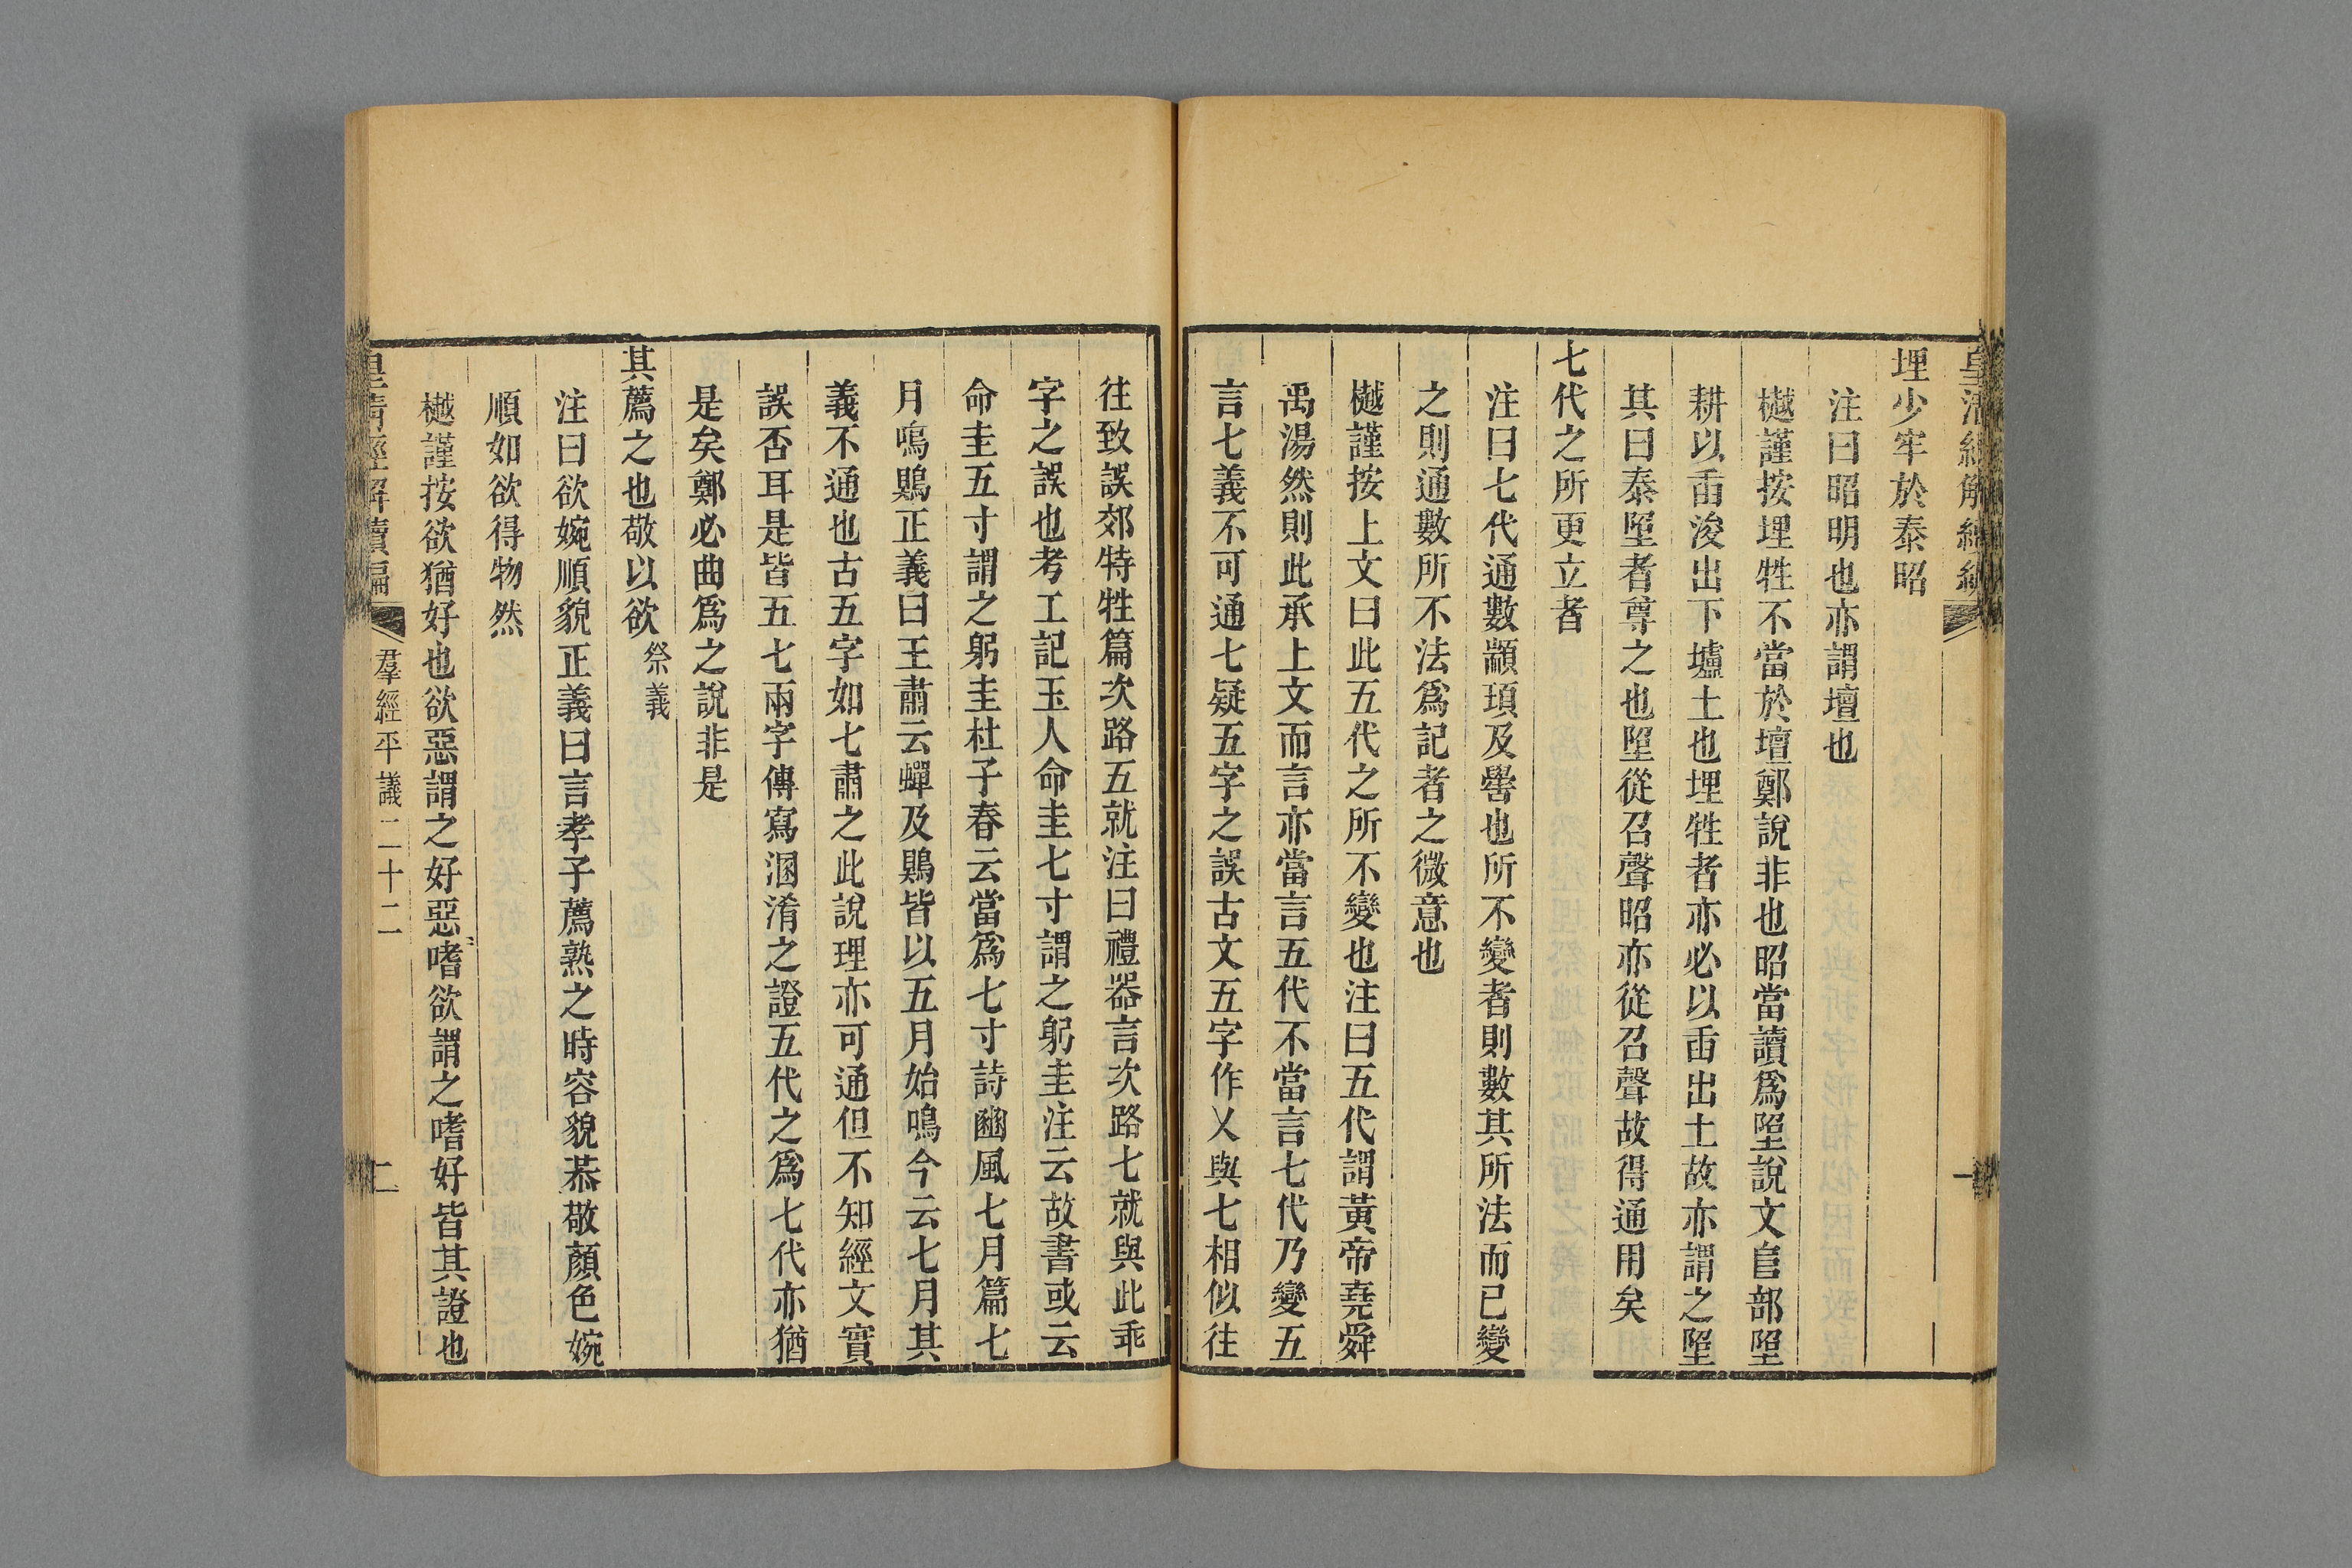 皇清經解續編
埋少牢於泰昭
注曰昭明也亦謂壇也
樾謹按埋牲不當於壇鄭說非也昭當讀爲㙷說文𨸏部㙷
耕以臿浚出下壚土也埋牲者亦必以臿出土故亦謂之㙷
其曰泰㙷者尊之也㙷從召聲昭亦從召聲故得通用矣
七代之所更立者
注曰七代通數顓頊及嚳也所不變者則數其所法而已變
之則通數所不法爲記者之微意也
樾謹按上文曰此五代之所不變也注曰五代謂黃帝堯舜
禹湯然則此承上文而言亦當言五代不當言七代乃變五
言七義不可通七疑五字之誤古文五字作㐅與七相似往
往致誤郊特牲篇次路五就注曰禮器言次路七就與此乖
字之誤也考工記玉人命圭七寸謂之躬圭注云故書或云
命圭五寸謂之躬圭杜子春云當爲七寸詩豳風七月篇七
月鳴鵙正義曰王肅云蟬及鵙皆以五月始鳴今云七月其
義不通也古五字如七肅之此說理亦可通但不知經文實
誤否耳是皆五七兩字傳寫溷淆之證五代之爲七代亦猶
是矣鄭必曲爲之說非是
其薦之也敬以欲 祭義
注曰欲婉順貌正義曰言孝子薦熟之時容貌恭敬顏色婉
順如欲得物然
樾謹按欲猶好也欲惡謂之好惡嗜欲謂之嗜好皆其證也
皇清經解續編 羣經平議二十二 二